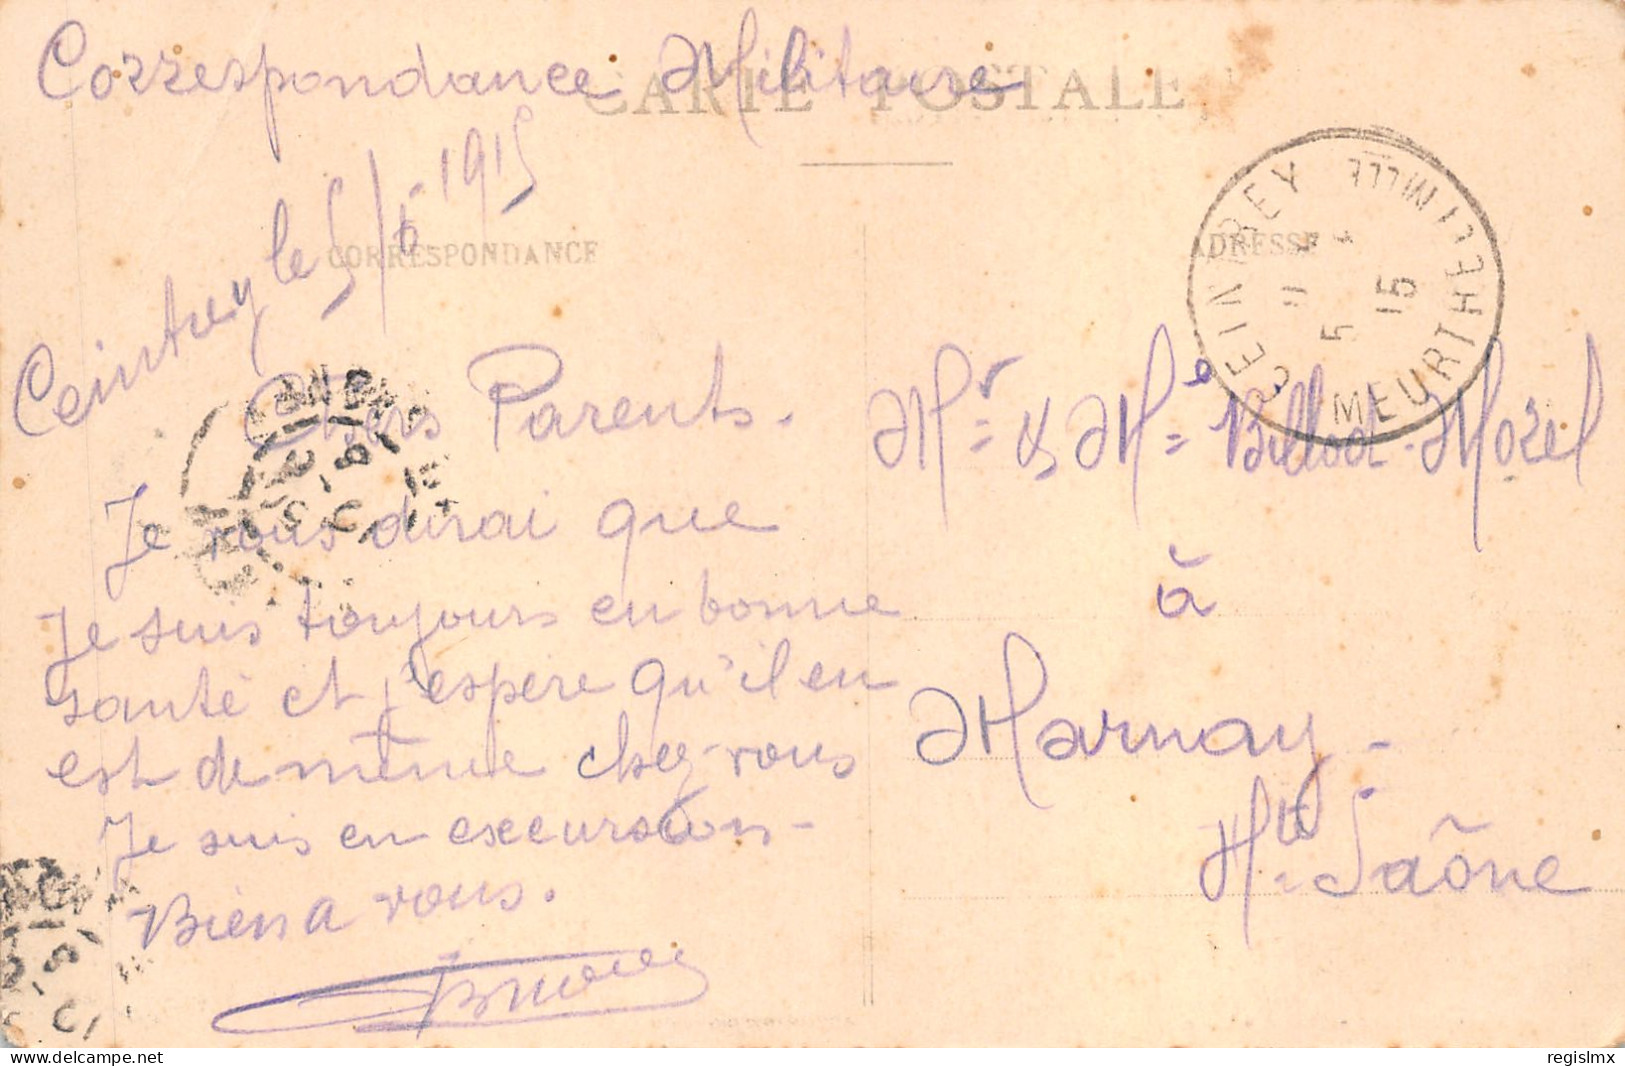 Correspondance Militaire
CARTE POSTALE
Ceintrey le 5/6-1915
CORRESPONDANCE
ADRESSE
CEINTREY
MEURTHE-ET-MLLE
5
15
Chers Parents.
Je vous dirai que
Je suis toujours en bonne
santé et j'espère qu'il en
est de même chez-vous
Je suis en excursion-
Bien a vous.
Mr & Me Billod-Morel
à
Marnay-
Hte Saône
regislmx